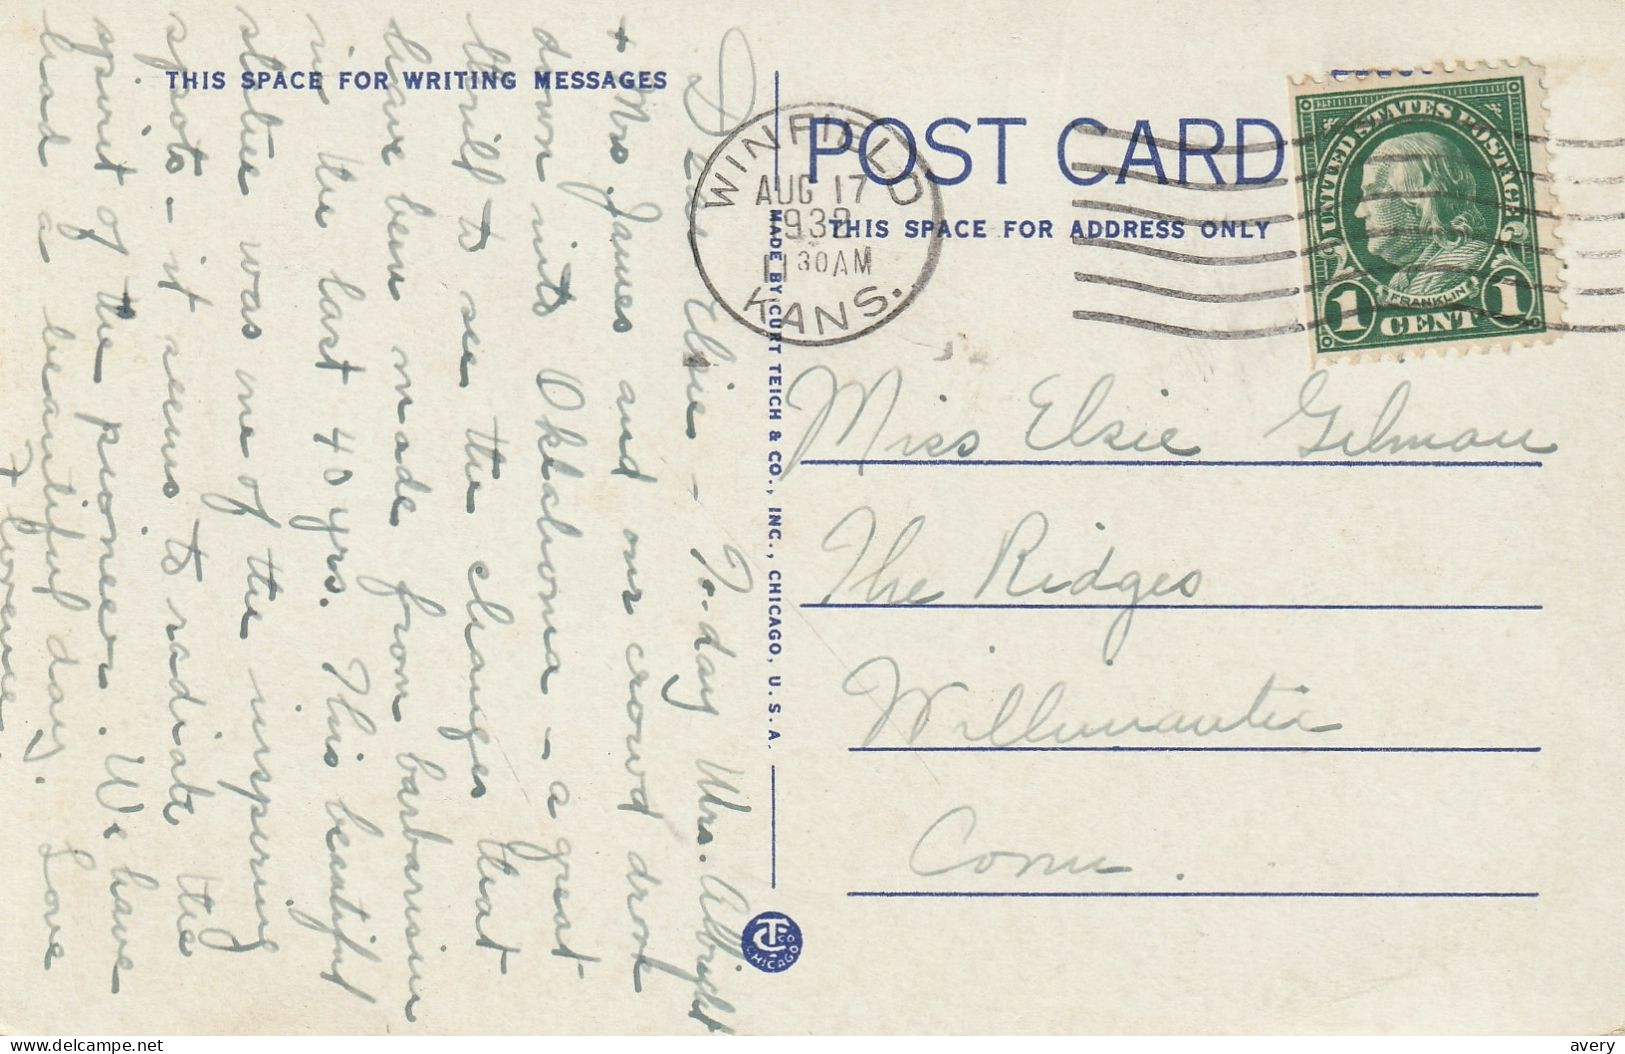 THIS SPACE FOR WRITING MESSAGES
Dear Elsie - To-day Mrs. Albright
+ Mrs James and our crowd drove
down into Oklahoma - a great
thrill to see the changes that
have been made from barbarism
in the last 40 yrs. This beautiful
statue was one of the inspiring
spots - it seems to radiate the
spirit of the pioneer. We have
had a beautiful day. Love
Florence.
POST CARD
THIS SPACE FOR ADDRESS ONLY
WINFIELD
AUG 17
1932
11 30 AM
KANS.
UNITED STATES POSTAGE
FRANKLIN
1 CENT 1
MADE BY CURT TEICH & CO., INC., CHICAGO, U.S.A.
Miss Elsie Gilman
The Ridges
Willimantic
Conn.
CT CO
CHICAGO
delcampe.net
avery